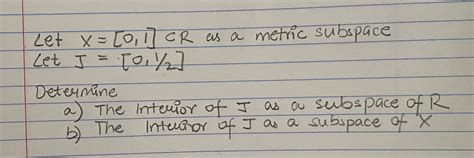 Let X = [0,1] ⊂ R as a metric subspace
Let J = [0,1/2]
Determine
a) The Interior of J as a subspace of R
b) The Interior of J as a subspace of X